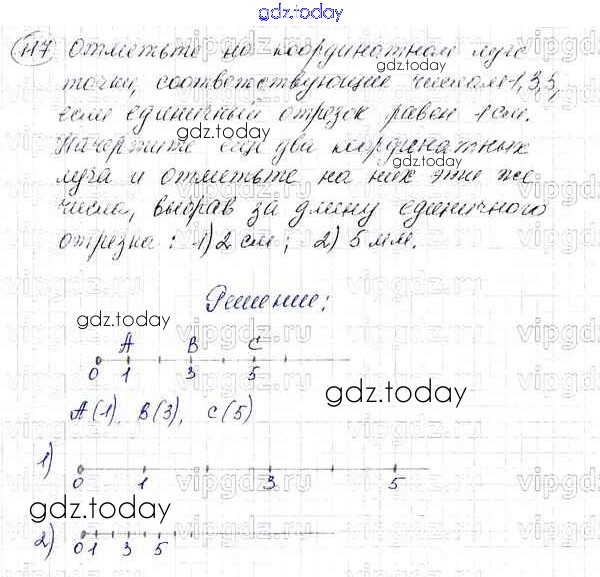 gdz.today
117 Отметьте на координатном луче
точки, соответствующие числам 1, 3, 5,
если единичный отрезок равен 1 см.
Начертите ещё два координатных
луча и отметьте на них эти же
числа, выбрав за длину единичного
отрезка: 1) 2 см; 2) 5 мм.
Решение:
A B C
0 1 3 5
A(1), B(3), C(5)
1) 0 1 3 5
2) 0 1 3 5
gdz.today
gdz.today
gdz.today
gdz.today
gdz.today
gdz.today
gdz.today